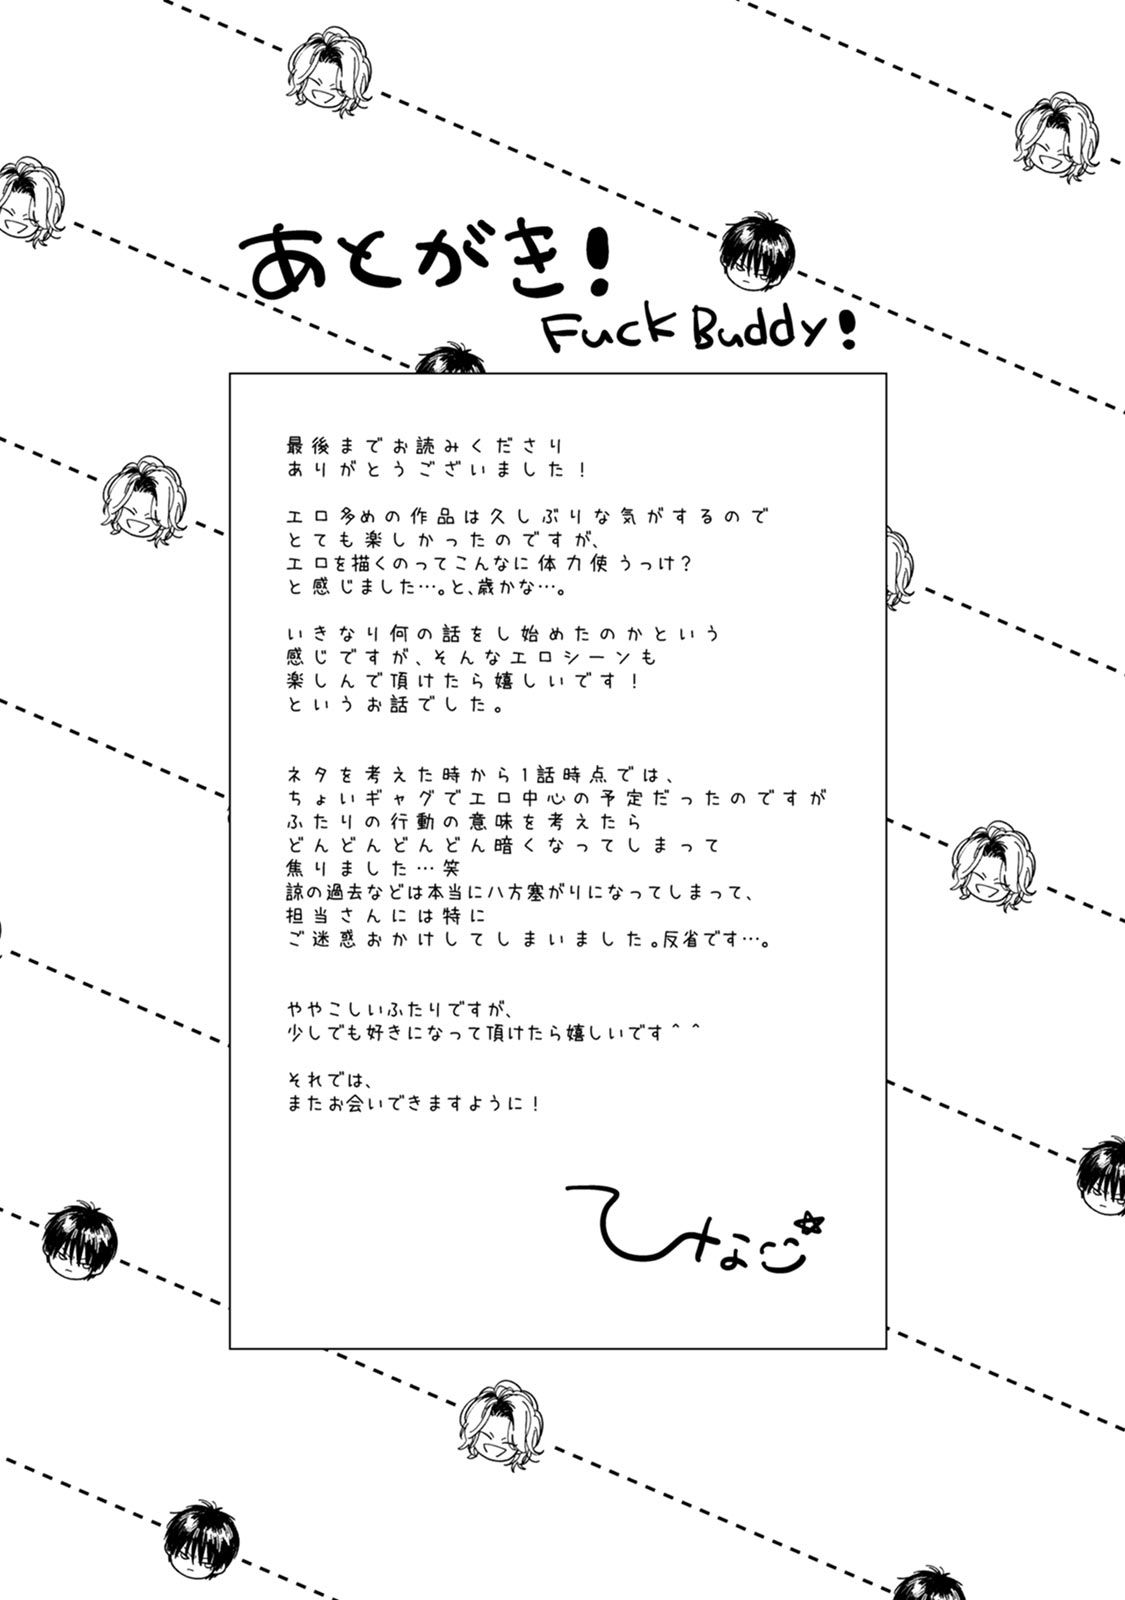 あとがき!
Fuck Buddy!
最後までお読みくださり
ありがとうございました!
エロ多めの作品は久しぶりな気がするので
とても楽しかったのですが、
エロを描くのってこんなに体力使うっけ?
と感じました…。と、歳かな…。
いきなり何の話をし始めたのかという
感じですが、そんなエロシーンも
楽しんで頂けたら嬉しいです!
というお話でした。
ネタを考えた時から1話時点では、
ちょいギャグでエロ中心の予定だったのですが
ふたりの行動の意味を考えたら
どんどんどんどん暗くなってしまって
焦りました…笑
諒の過去などは本当に八方塞がりになってしまって、
担当さんには特に
ご迷惑おかけしてしまいました。反省です…。
ややこしいふたりですが、
少しでも好きになって頂けたら嬉しいです^^
それでは、
またお会いできますように!
ひなこ